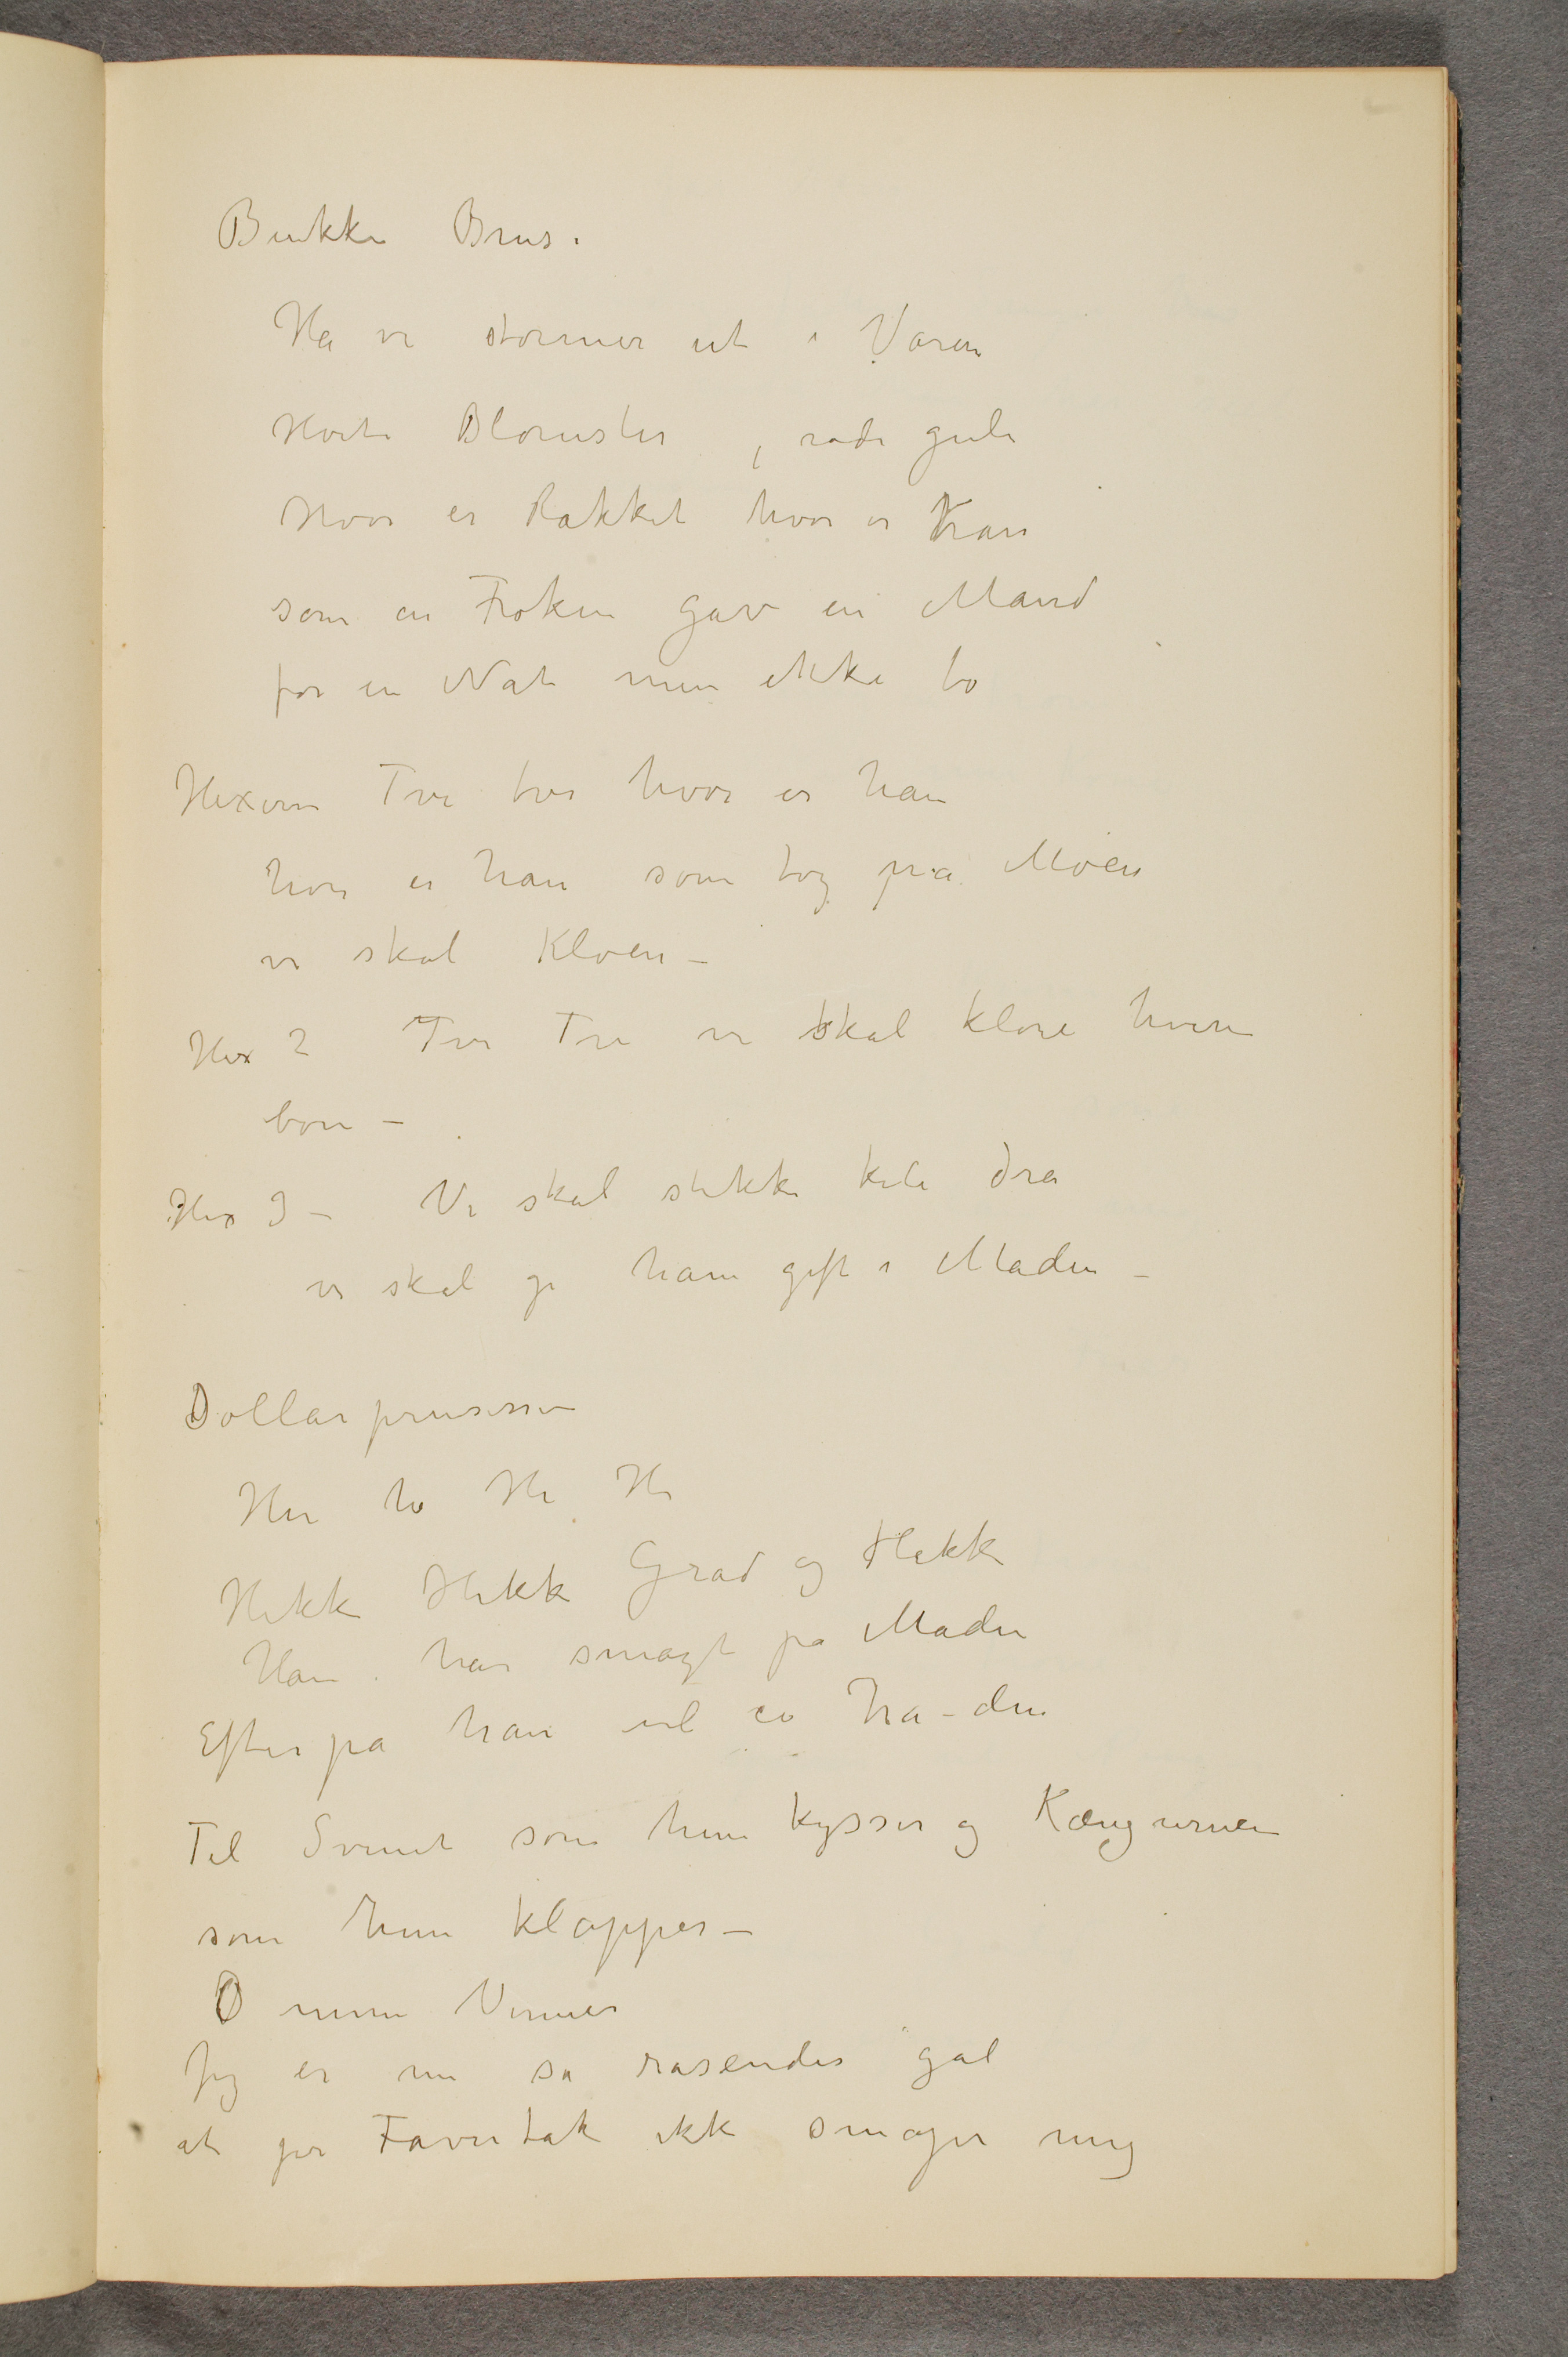 Bukken Brus.
Ha vi stormer ut i Våren
Hvite Blomster, røde gule
Hvor er Pakket hvor er Kran
som en Frøken gav en Mand
for en Nat men ikke to
Hexerne Tvi tvi hvor er han
hvor er han som tog på Møen
vi skal Kløen –
Hex 2 Tvi Tvi vi skal klore hveran
bore –
Hex 3 – Vi skal stikke kile dra
vi skal gi ham gift i Maden –
Dollarprinsessen
Hu ho Hi Hi
Hikk Hikk Gråd og Hikk
Han har smagt på Maden
Efterpå han vil ei ha-den
Til Svinet som hun kysser og Kænguruen
som hun klapper –
O mine Venner
Jeg er nu så rasendes gal
at jer Favntak ikke smager mig